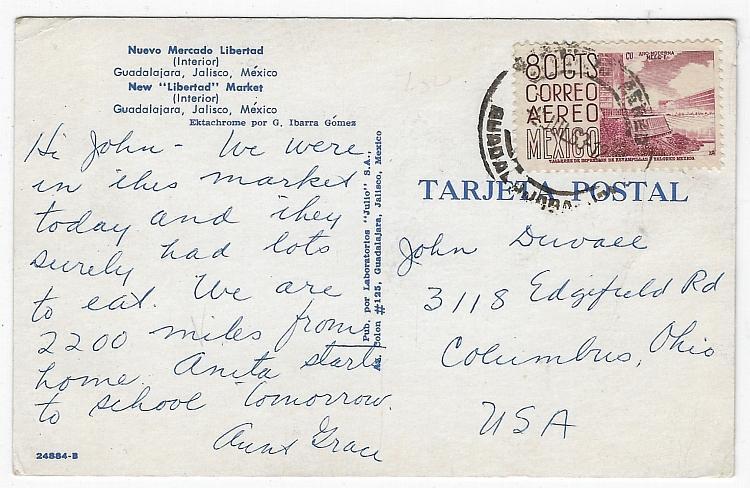 Nuevo Mercado Libertad
(Interior)
Guadalajara, Jalisco, México
New "Libertad" Market
(Interior)
Guadalajara, Jalisco, México
Ektachrome por G. Ibarra Gómez
Hi John - We were
in this market
today and they
surely had lots
to eat. We are
2200 miles from
home. Anita starts
to school tomorrow.
Aunt Grace
24884-B
Pub. por Laboratorios "Julio" S.A.,
Av. Colon #125, Guadalajara, Jalisco, Mexico
80 CTS
CORREO
AEREO
MEXICO
CU ARQ. MODERNA
MEX. D.F.
TALLERES DE IMPRESION DE ESTAMPILLAS Y VALORES MEXICO.
TARJETA POSTAL
John Duvall
3118 Edgefield Rd
Columbus, Ohio
USA